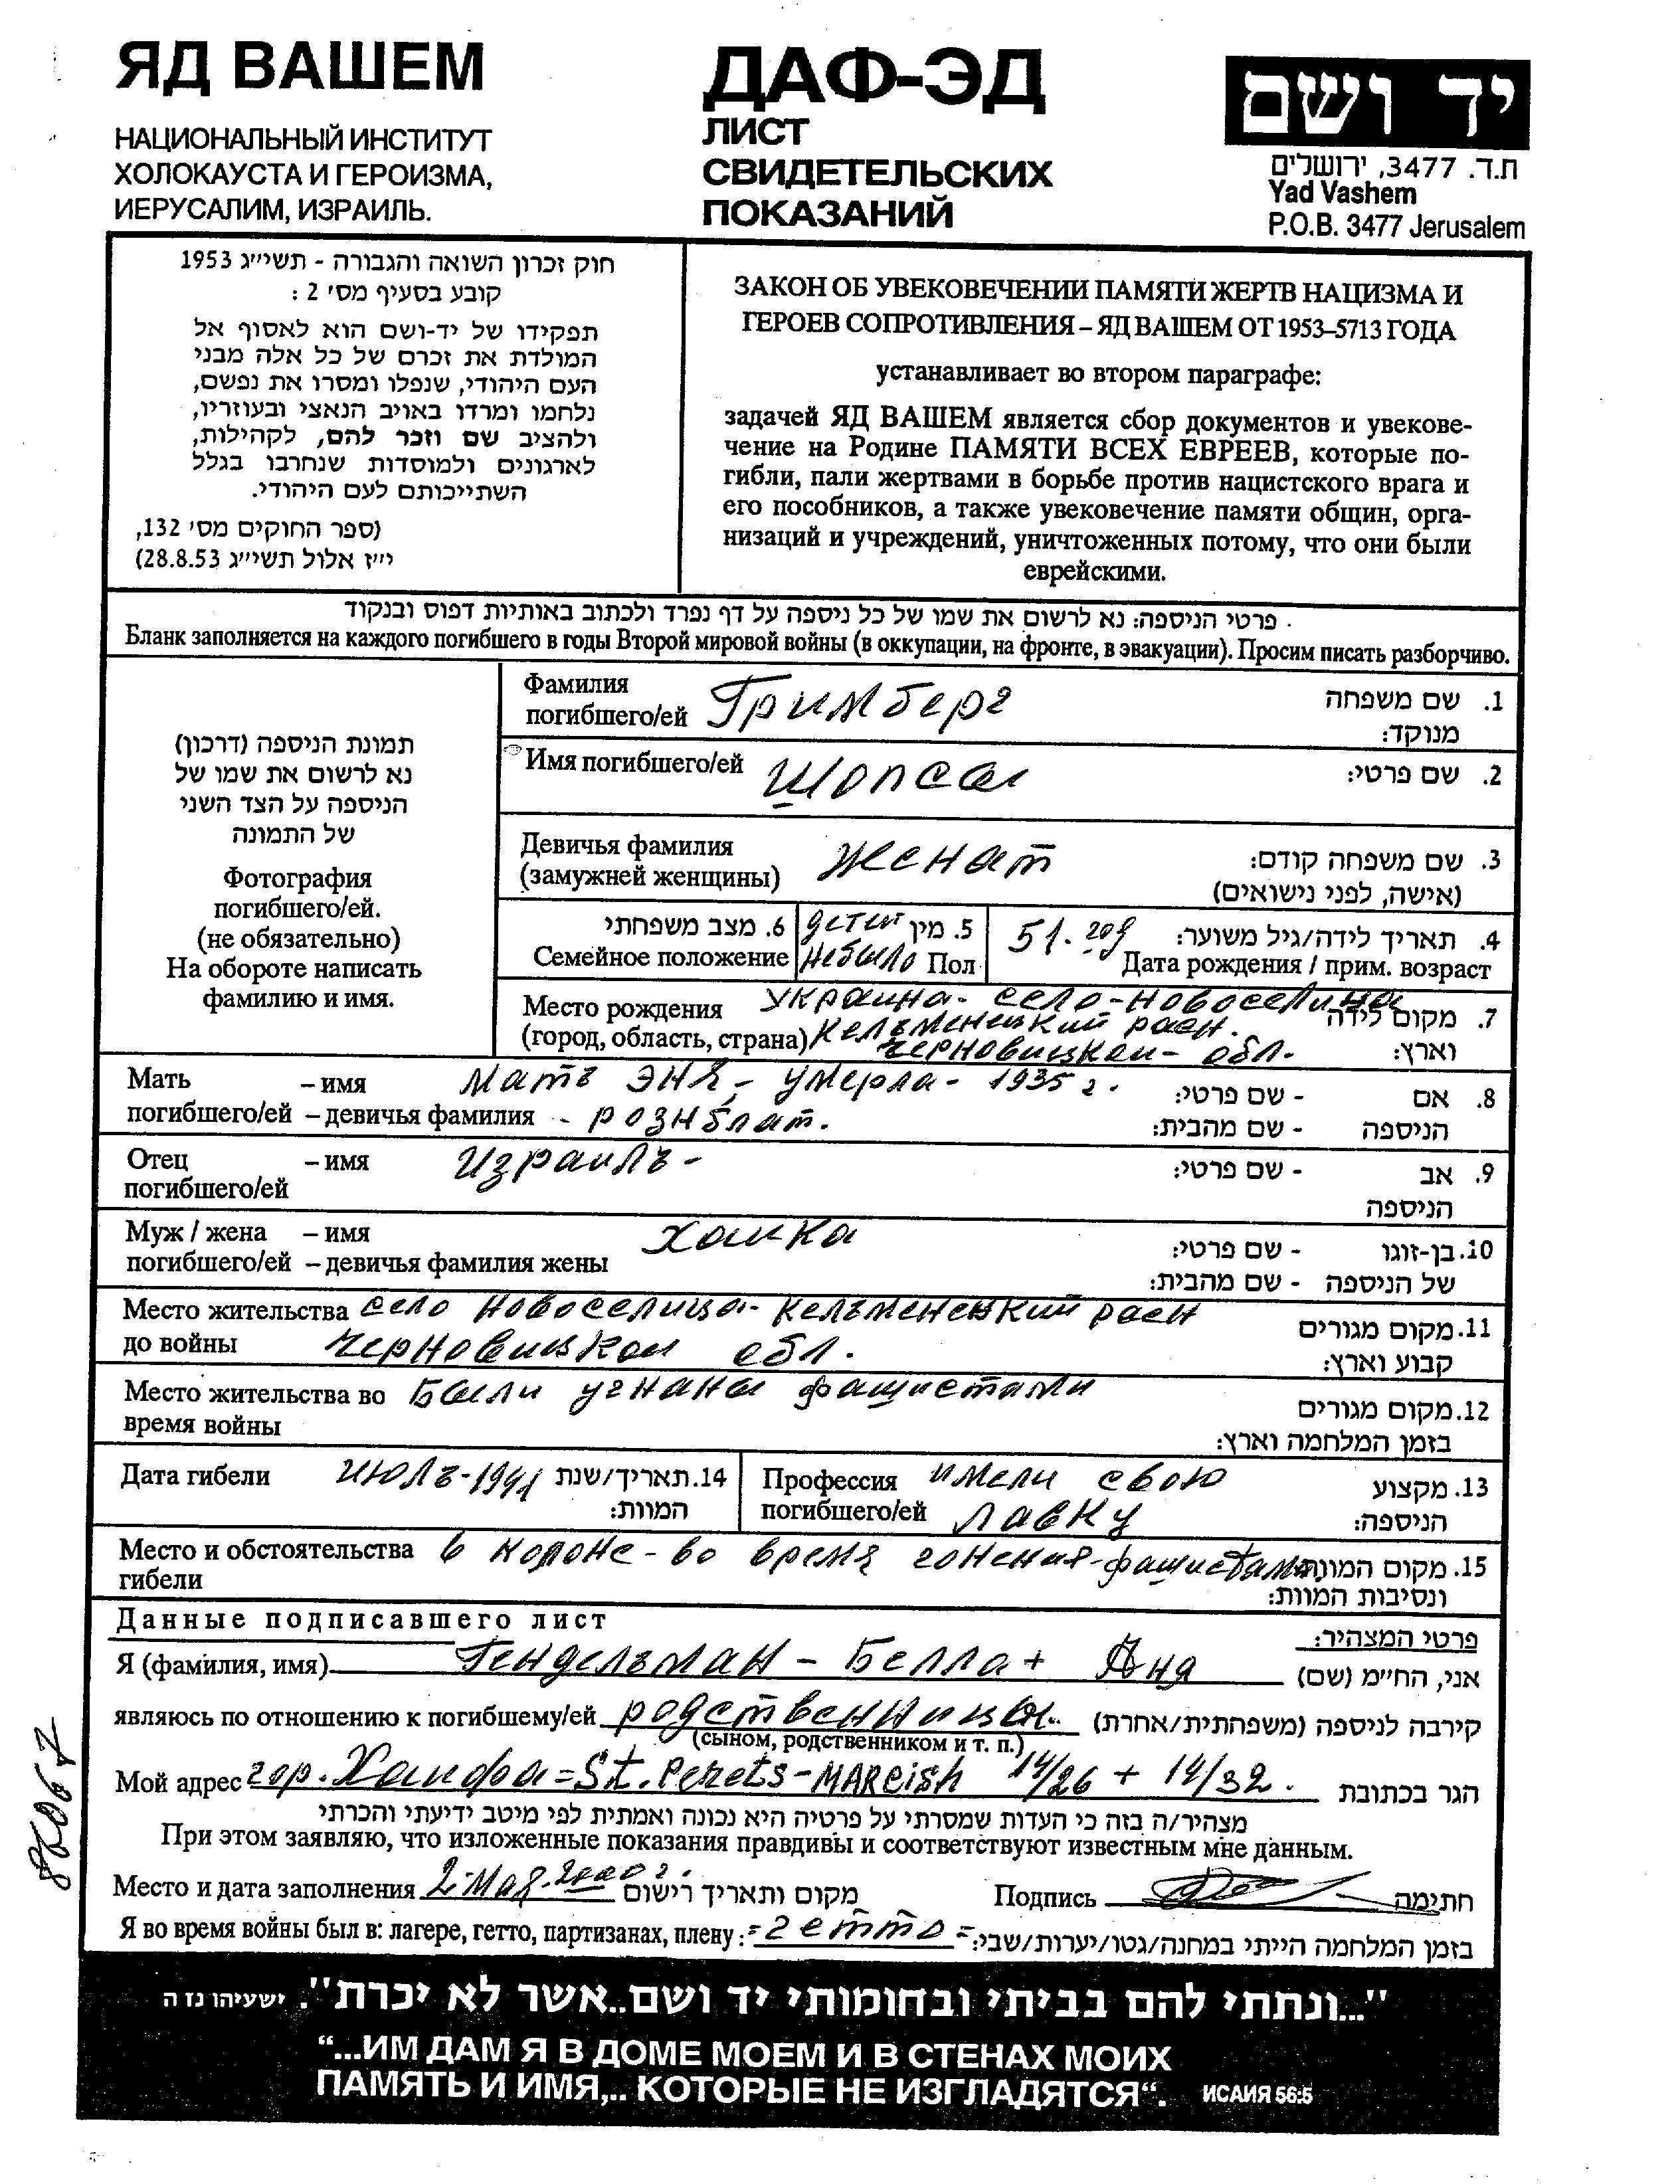 ЯД ВАШЕМ
НАЦИОНАЛЬНЫЙ ИНСТИТУТ
ХОЛОКАУСТА И ГЕРОИЗМА,
ИЕРУСАЛИМ, ИЗРАИЛЬ.
ДАФ-ЭД
ЛИСТ
СВИДЕТЕЛЬСКИХ
ПОКАЗАНИЙ
יד ושם
ת.ד. 3477, ירושלים
Yad Vashem
P.O.B. 3477 Jerusalem
חוק זכרון השואה והגבורה - תשי״ג 1953
קובע בסעיף מס׳ 2 :
תפקידו של יד-ושם הוא לאסוף אל
המולדת את זכרם של כל אלה מבני
העם היהודי, שנפלו ומסרו את נפשם,
נלחמו ומרדו באויב הנאצי ובעוזריו,
ולהציב שם וזכר להם, לקהילות,
לארגונים ולמוסדות שנחרבו בגלל
השתייכותם לעם היהודי.
(ספר החוקים מס׳ 132,
י״ז אלול תשי״ג 28.8.53)
ЗАКОН ОБ УВЕКОВЕЧЕНИИ ПАМЯТИ ЖЕРТВ НАЦИЗМА И
ГЕРОЕВ СОПРОТИВЛЕНИЯ – ЯД ВАШЕМ ОТ 1953–5713 ГОДА
устанавливает во втором параграфе:
задачей ЯД ВАШЕМ является сбор документов и увекове-
чение на Родине ПАМЯТИ ВСЕХ ЕВРЕЕВ, которые по-
гибли, пали жертвами в борьбе против нацистского врага и
его пособников, а также увековечение памяти общин, орга-
низаций и учреждений, уничтоженных потому, что они были
еврейскими.
פרטי הניספה: נא לרשום את שמו של כל ניספה על דף נפרד ולכתוב באותיות דפוס ובנקוד .
Бланк заполняется на каждого погибшего в годы Второй мировой войны (в оккупации, на фронте, в эвакуации). Просим писать разборчиво.
תמונת הניספה (דרכון)
נא לרשום את שמו של
הניספה על הצד השני
של התמונה
Фотография
погибшего/ей.
(не обязательно)
На обороте написать
фамилию и имя.
Фамилия
погибшего/ей Гримберг
1. שם משפחה
מנוקד:
Имя погибшего/ей Шопсал
2. שם פרטי:
Девичья фамилия
(замужней женщины) женат
3. שם משפחה קודם:
(אישה, לפני נישואים)
6. מצב משפחתי
Семейное положение
детей
не было
5. מין
Пол
51. год
4. תאריך לידה/גיל משוער:
Дата рождения / прим. возраст
Место рождения Украина- село-новоселица
(город, область, страна) Кельменецкий раен.
Черновицкои- обл.
7. מקום לידה
וארץ:
Мать – имя Мать ЭНЯ, - умерла - 1935 г.
погибшего/ей – девичья фамилия - рознблат.
8. אם - שם פרטי:
הניספה - שם מהבית:
Отец – имя Израиль-
погибшего/ей
9. אב - שם פרטי:
הניספה
Муж / жена – имя хаика
погибшего/ей – девичья фамилия жены
10. בן-זוגו - שם פרטי:
של הניספה - שם מהבית:
Место жительства село новоселица- Кельменецкий раен
до войны Черновицкои обл.
11. מקום מגורים
קבוע וארץ:
Место жительства во Были угнаны фашистами
время войны
12. מקום מגורים
בזמן המלחמה וארץ:
Дата гибели июль-1941
14. תאריך/שנת
המוות:
Профессия имели свою
погибшего/ей лавку
13. מקצוע
הניספה:
Место и обстоятельства в колоне - во время гонения-фашистами.
гибели
15. מקום המוות
ונסיבות המוות:
Данные подписавшего лист
פרטי המצהיר:
Я (фамилия, имя) Гендельман - Белла + Яня
אני, הח״מ (שם)
являюсь по отношению к погибшему/ей родственницы.
(сыном, родственником и т. п.)
קירבה לניספה (משפחתית/אחרת)
Мой адрес гор. Хаифа = St. Perets - MAReish 14/26 + 14/32.
הגר בכתובת
מצהיר/ה בזה כי העדות שמסרתי על פרטיה היא נכונה ואמתית לפי מיטב ידיעתי והכרתי
При этом заявляю, что изложенные показания правдивы и соответствуют известным мне данным.
Место и дата заполнения 2-мая. 2000 г.
מקום ותאריך רישום
Подпись
חתימה
Я во время войны был в: лагере, гетто, партизанах, плену: =гетто=
בזמן המלחמה הייתי במחנה/גטו/יערות/שבי:
"...ונתתי להם בביתי ובחומותי יד ושם..אשר לא יכרת". ישעיהו נז ה
“...ИМ ДАМ Я В ДОМЕ МОЕМ И В СТЕНАХ МОИХ
ПАМЯТЬ И ИМЯ,.. КОТОРЫЕ НЕ ИЗГЛАДЯТСЯ“. ИСАИЯ 56:5